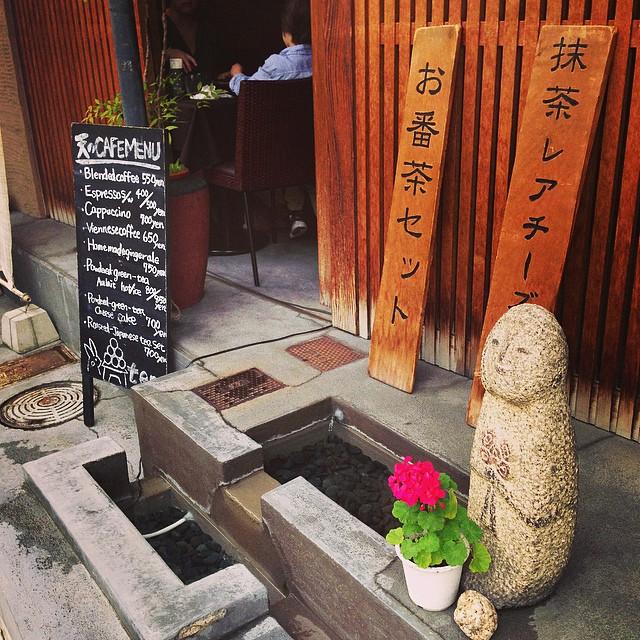 CAFE MENU
・Blended coffee 550yen
・Espresso s/w 400/500yen
・Cappuccino 700yen
・Viennese coffee 650yen
・Homemade gingerale
750yen
・Powdered green-tea
Au lait hot/ice 800/850yen
・Powdered green-tea
Cheese Cake 700yen
・Roasted Japanese tea Set
700yen
tea
お番茶セット
抹茶レアチーズ